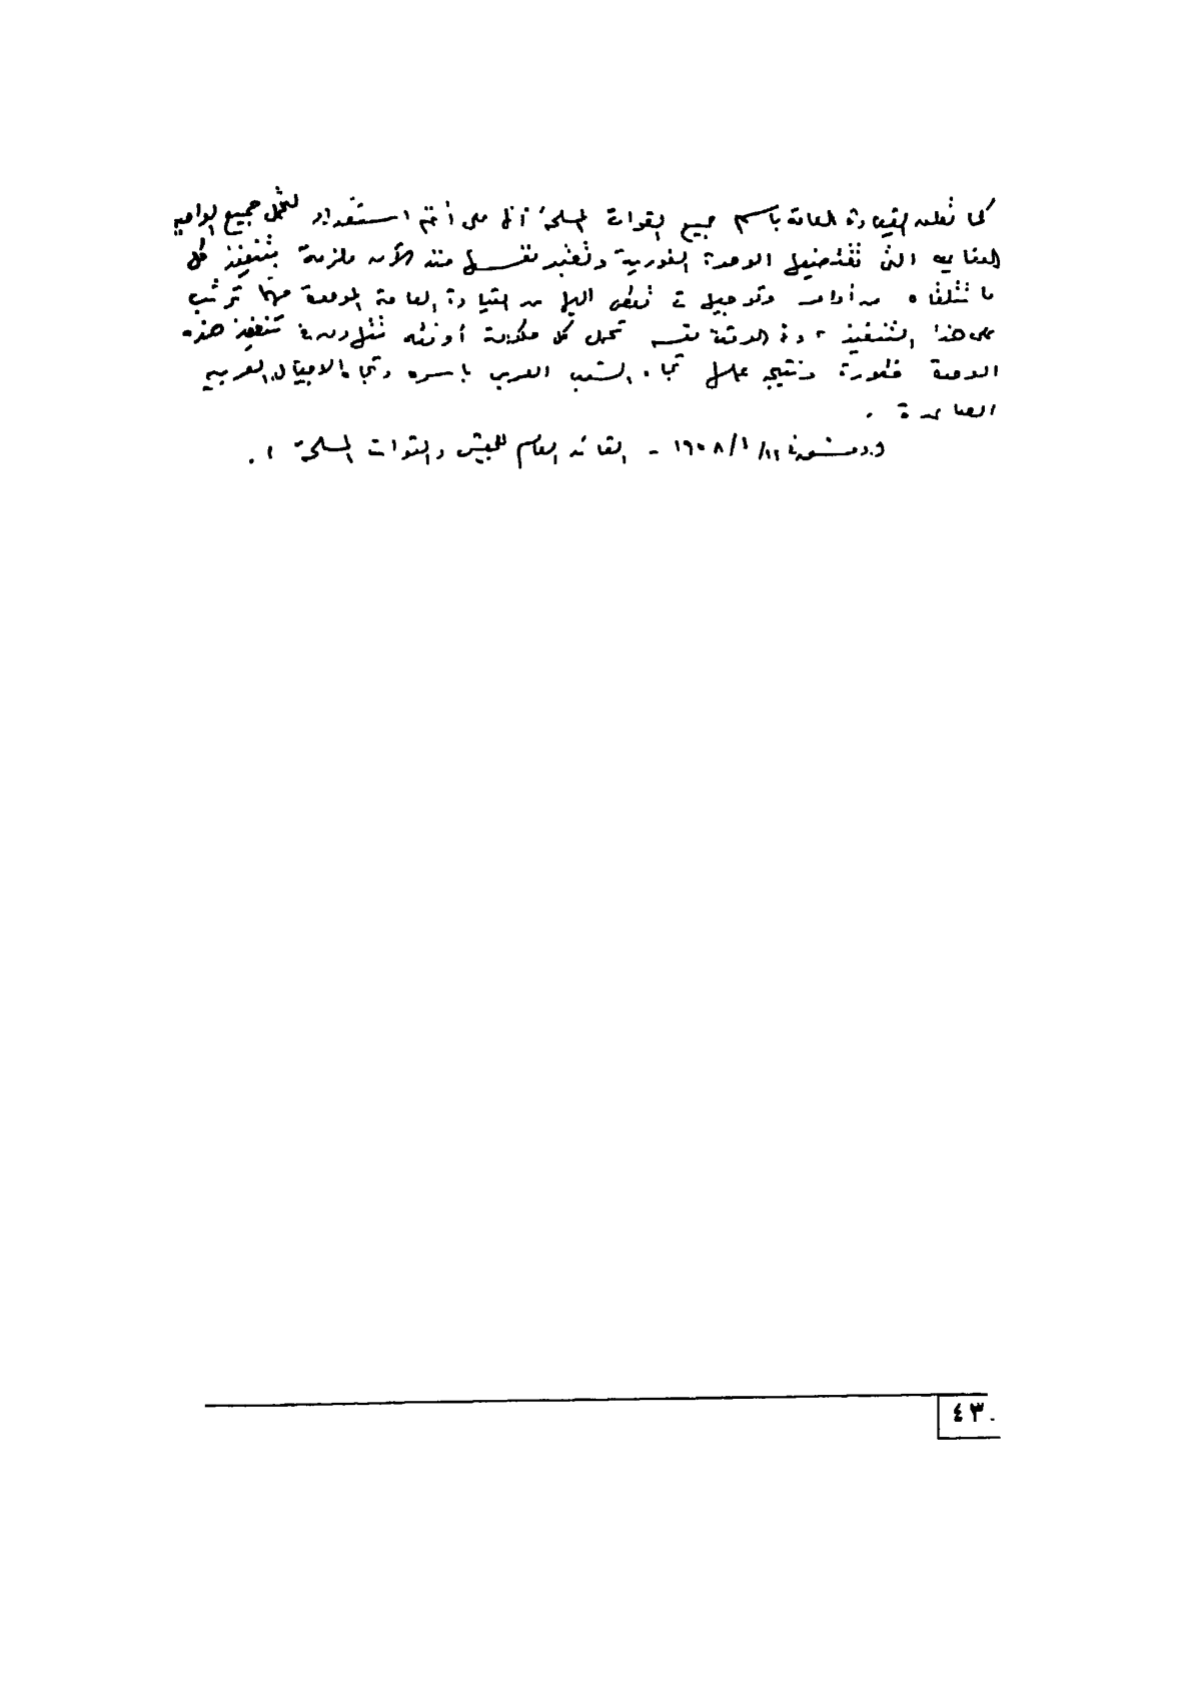 كما تعلن القيادة العامة باسم جميع القوات المسلحة أنها على أتم استعداد لتحمل جميع الواجبات
التي تقتضيها الوحدة الفورية وتعتبر نفسها منذ الآن ملزمة بتنفيذ كل
ما تتلقاه من أوامر وتوجيهات تعطى إليها من القيادة العامة الموحدة مهما ترتب
على هذا التنفيذ وفي الوقت نفسه تحمل كل حكومة أو فئة تتهاون في تنفيذ هذه
الوحدة خطورة ونتيجة عملها تجاه الشعب العربي بأسره وتجاه الاجيال العربية
الصاعدة .
و.دمشق في ١١/١/١٩٥٨ - القائد العام للجيش والقوات المسلحة .
٤٣٠